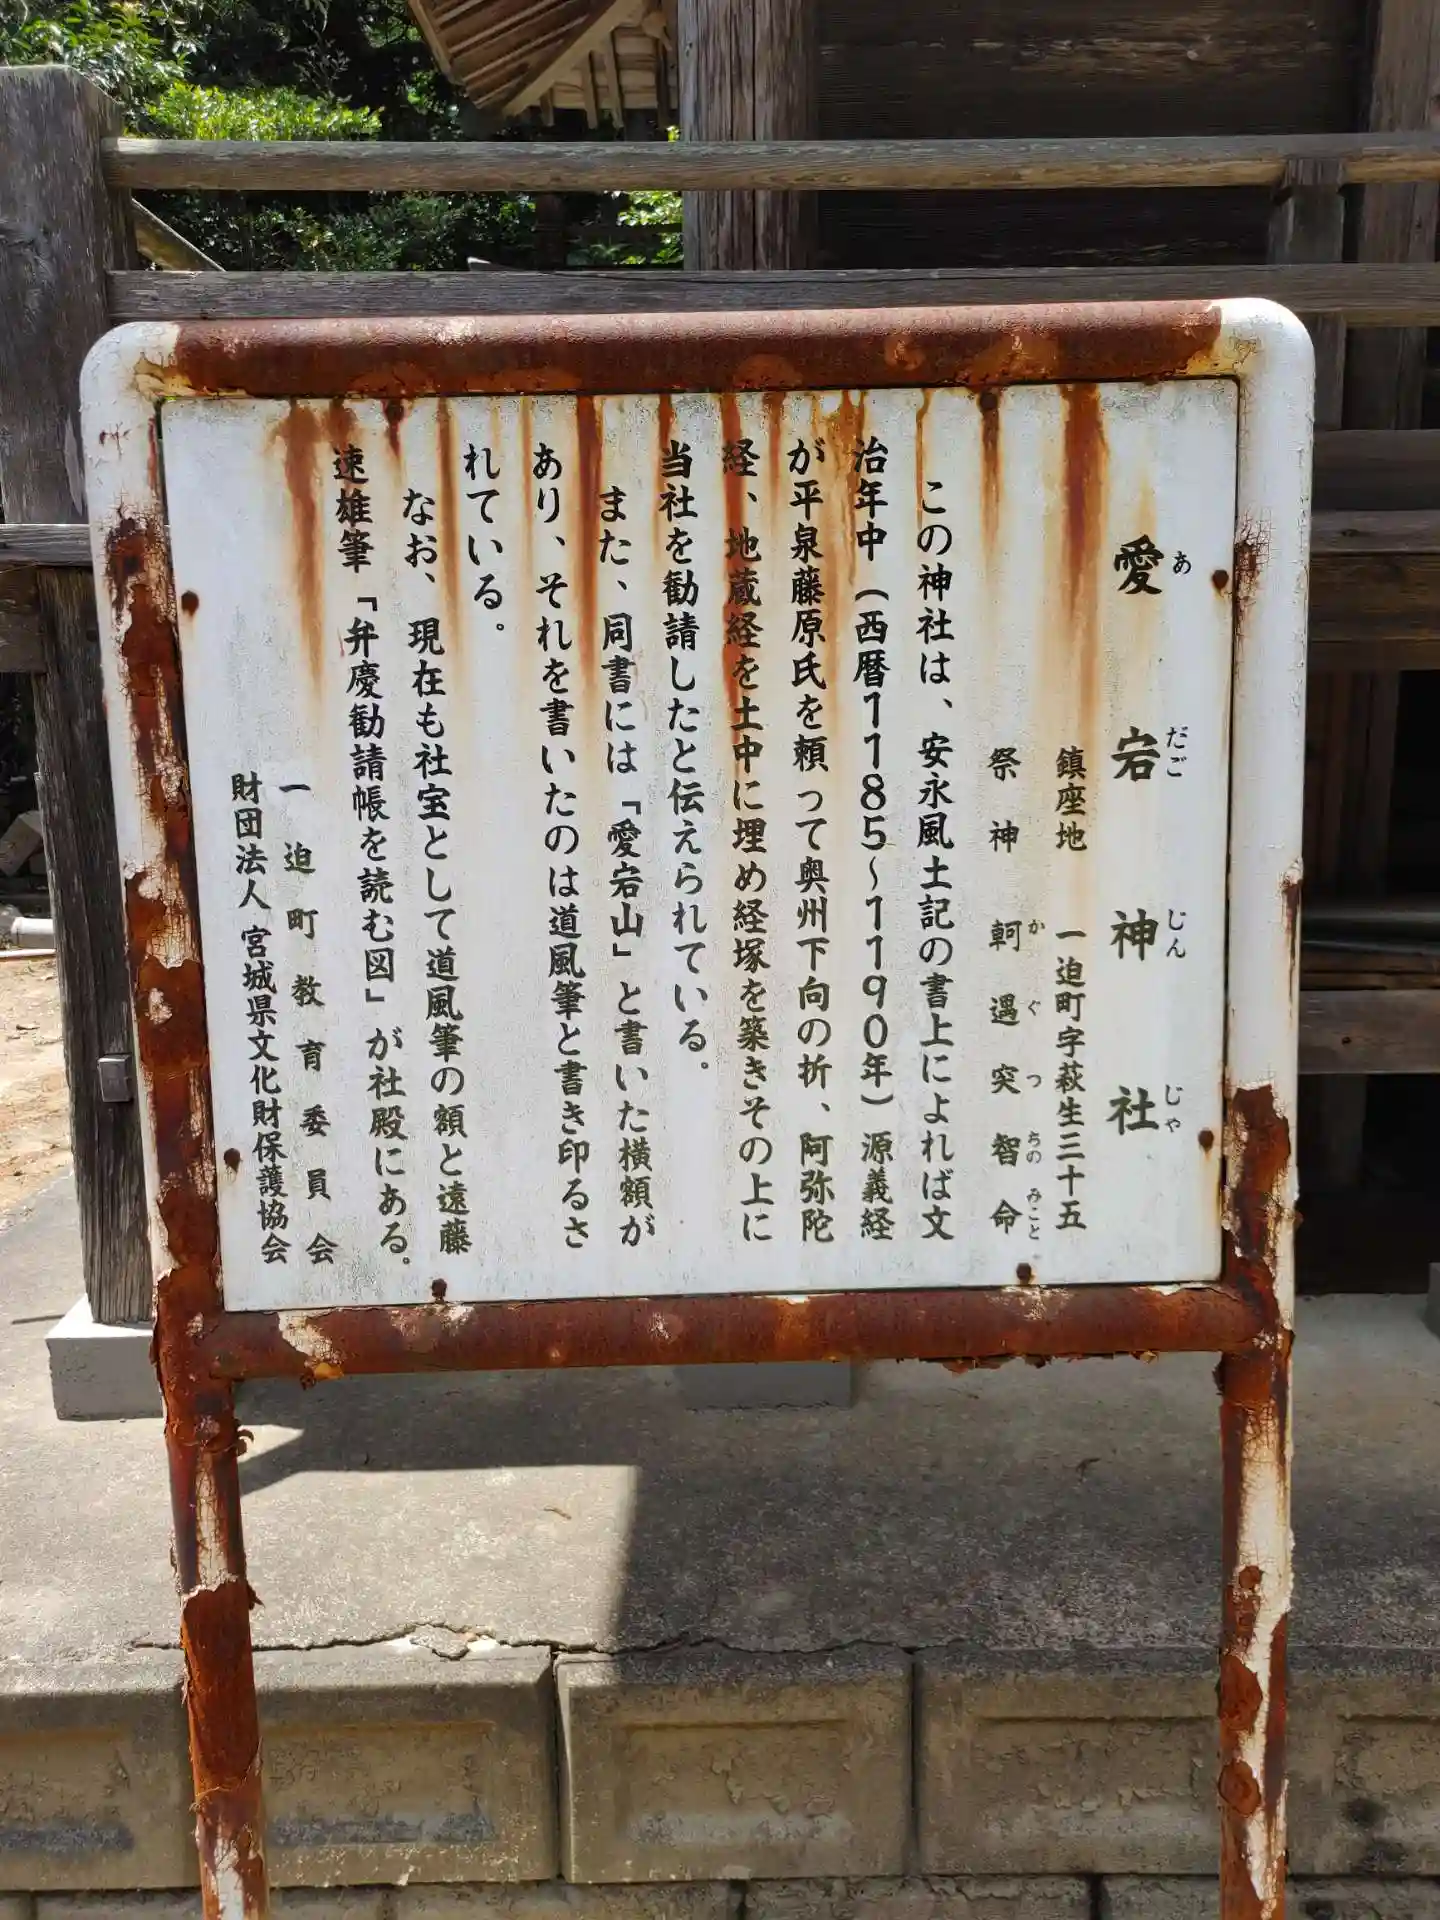 愛宕神社
あ だご じん じゃ
鎮座地 一迫町字萩生三十五
祭神 軻遇突智命
か ぐ つ ちの みこと
この神社は、安永風土記の書上によれば文
治年中(西暦1185~1190年)源義経
が平泉藤原氏を頼って奥州下向の折、阿弥陀
経、地蔵経を土中に埋め経塚を築きその上に
当社を勧請したと伝えられている。
また、同書には「愛宕山」と書いた横額が
あり、それを書いたのは道風筆と書き印るさ
れている。
なお、現在も社宝として道風筆の額と遠藤
速雄筆「弁慶勧請帳を読む図」が社殿にある。
一迫町教育委員会
財団法人 宮城県文化財保護協会